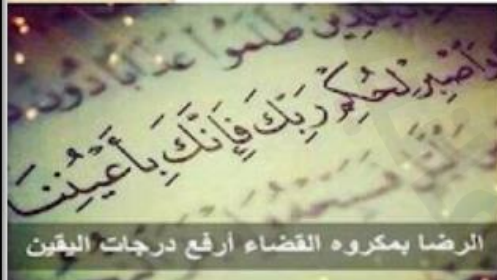 ظَلَمُوا عَذَابًا دُونَ
وَاصْبِرْ لِحُكْمِ رَبِّكَ فَإِنَّكَ بِأَعْيُنِنَا
الرضا بمكروه القضاء أرفع درجات اليقين